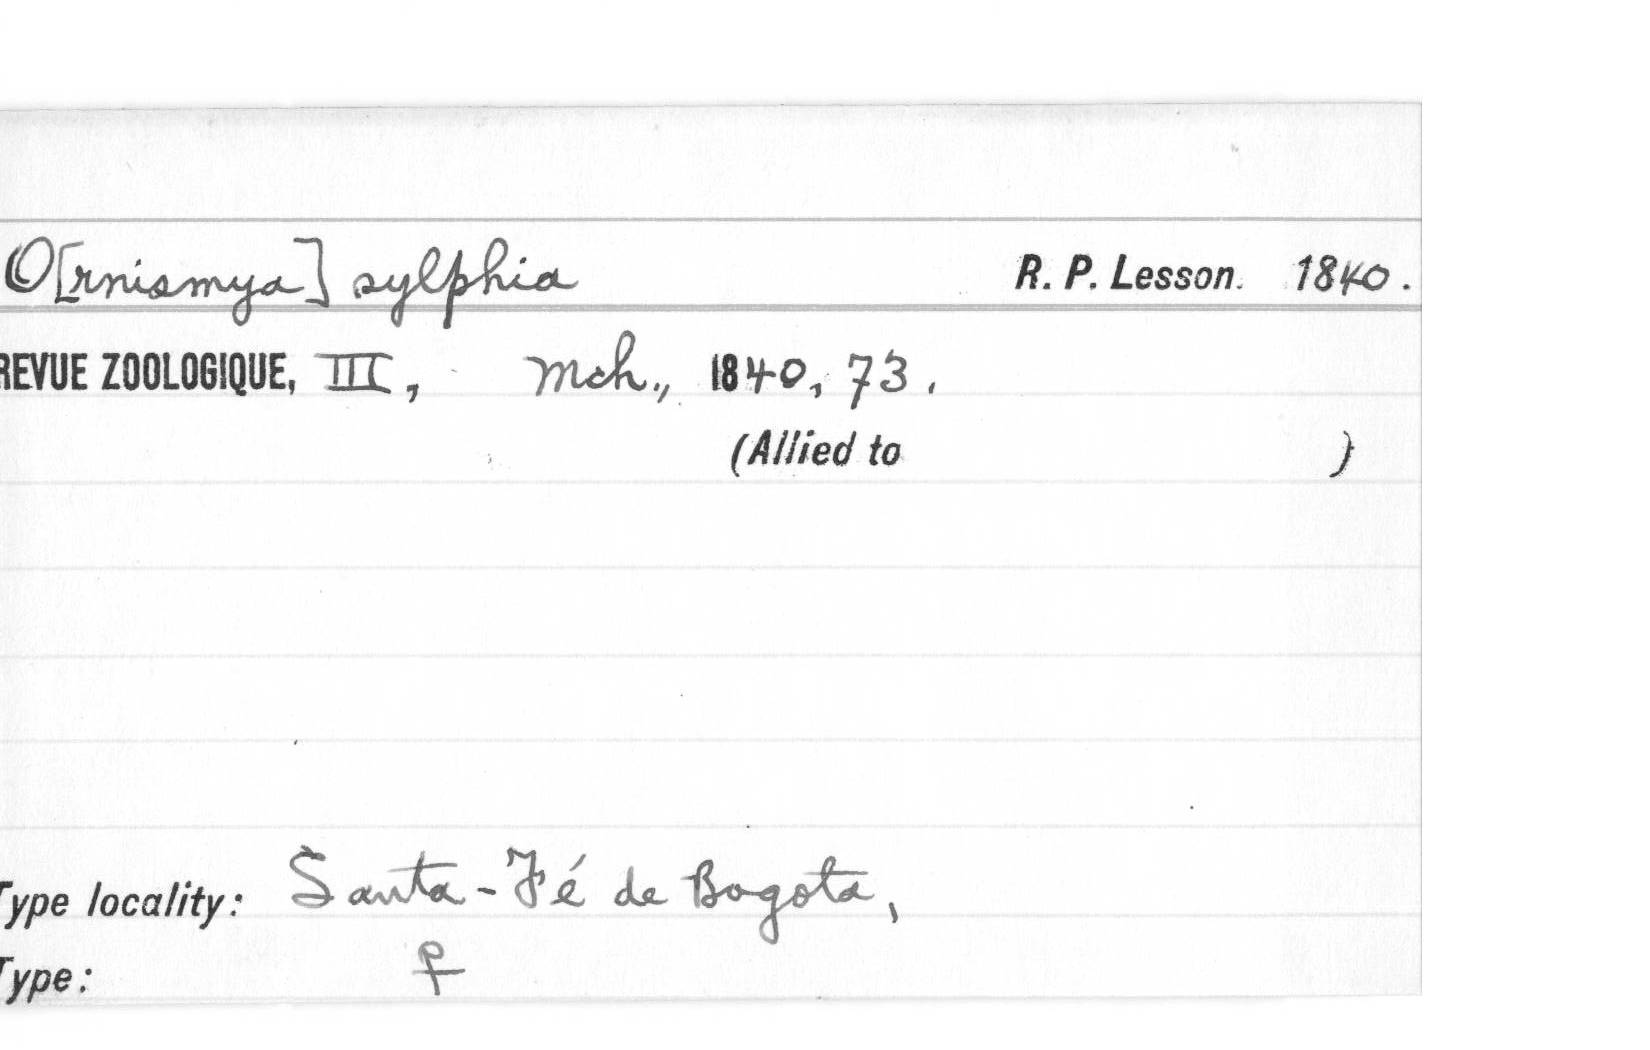 O[rnismya] sylphia R. P. Lesson. 1840.
REVUE ZOOLOGIQUE, III, Mch., 1840, 73.
(Allied to )
Type locality: Santa-Fé de Bogota,
Type: ♀